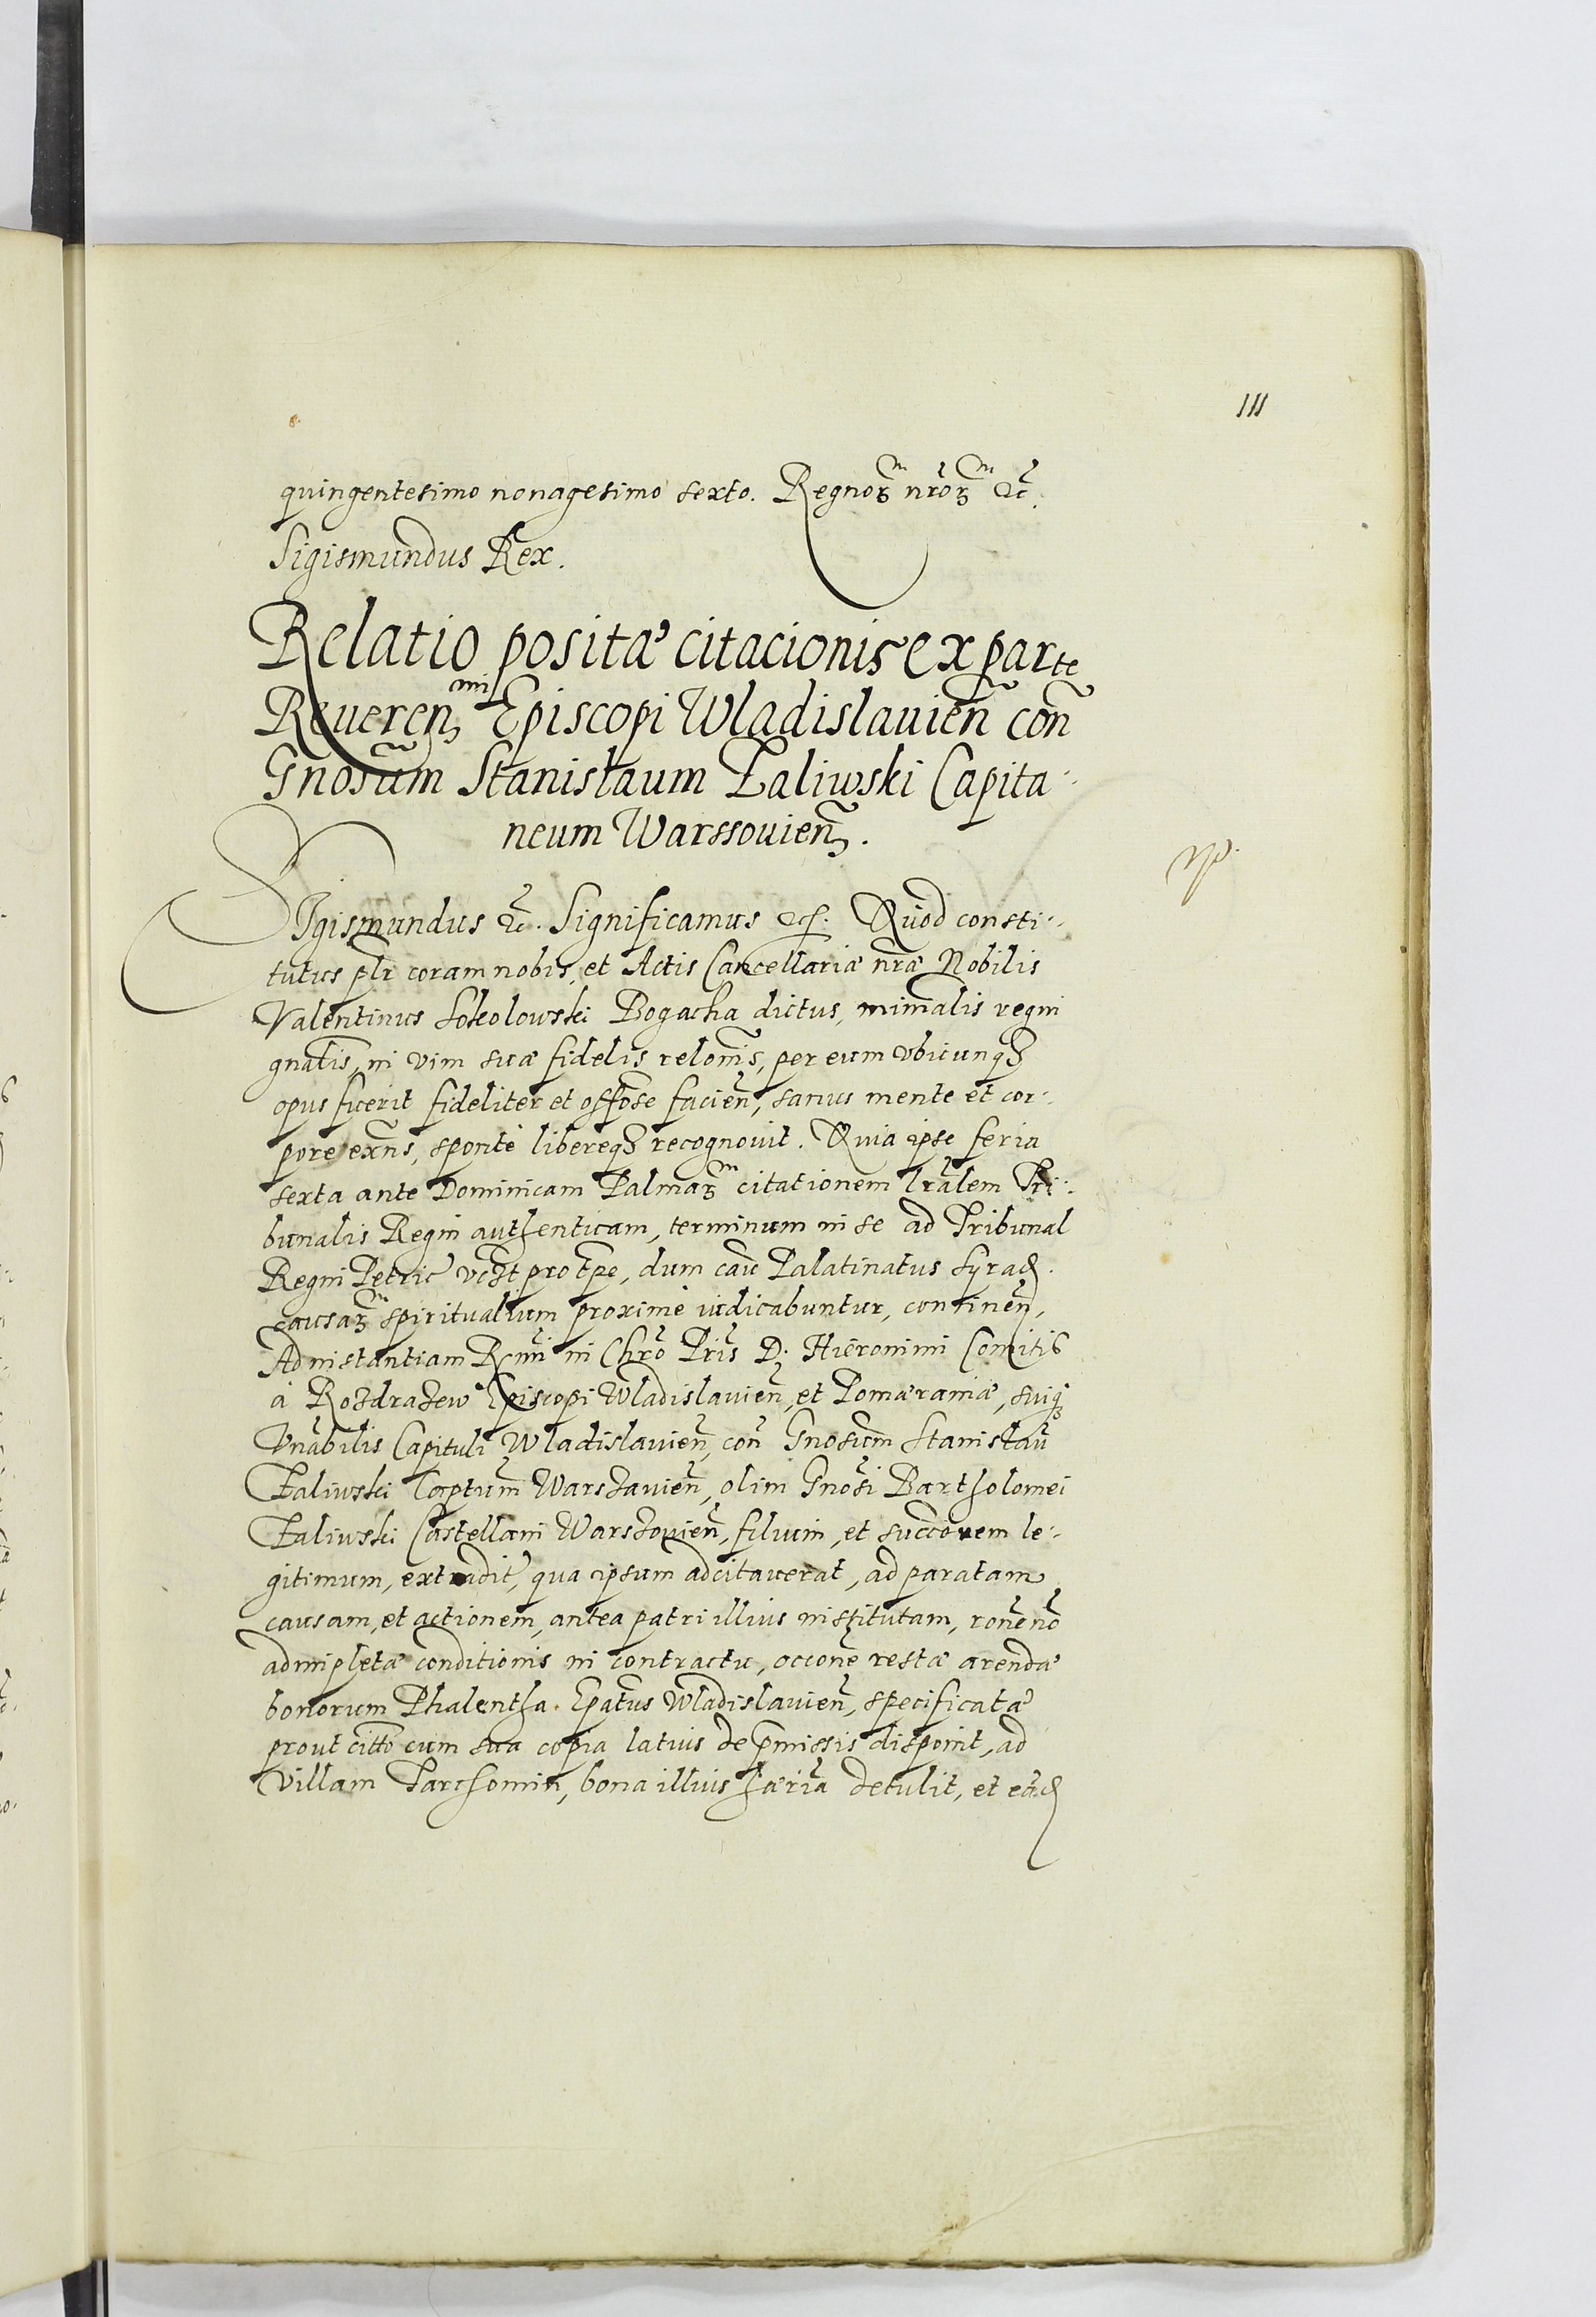 111
quingentesimo nonagesimo sexto. Regnoꝝ nr̃oꝝ ꝛc̃.
Sigismundus Rex.
Relatio positæ citacionis ex parte
Reueren^mi Episcopi Wladislauien̄ con̄
Gnosum̄ Stanislaum Zaliwski Capita-
neum Warssouien̄.
np.
SIgismundus ꝛc̃. Significamus ꝛc̃. Quod consti-
tutus pl̃r coram nobis, et Actis Cancellariæ nr̃æ Nobilis
Valentinus Sokolowski Bogacka dictus, minr̃alis regni
gnãlis, in vim suæ fidelis relom̃s, per eum vbicunqꝫ
opus fuerit fideliter et offõse facien̄, sanus mente et cor-
pore exñs, sponte libereqꝫ recognouit. Quia ipse feria
sexta ante Dominicam Palmaꝝ citationem lr̃alem Tri-
bunalis Regni authenticam, terminum in se ad Tribunal
Regni Petric̃ pro tp̃e, dum caũ Palatinatus Syrad.
causaꝝ spiritualium proxime iudicabuntur, continen̄,
Ad instantiam Rm̃i in Chr̃o Pr̃is D. Hieronimi Comitis
a Rozdrazew Episcopi Wladislauien̄, et Pomeraniæ, suiqꝫ
Vñabilis Capituli Wladislauien̄, con̄ Gnosum̄ Stanislaũ
Zaliwski Captum̄ Warszauien̄, olim Gnosi Bartholomei
Zaliwski Castellani Warszouien̄, filium, et succorem le-
gitimum, extradit, qua ipsum adcitauerat, ad paratam
causam, et actionem, antea patri illius institutam, rõne nõ
adimpletæ conditionis in contractu, occone restæ arendæ
bonorum Phalentha Ep̃atus Wladislauien̄, specificatæ
prout citt̃o cum sua copia latius de p̃missis disponit, ad
villam Tarchomin, bona illius hæria detulit, et eãd